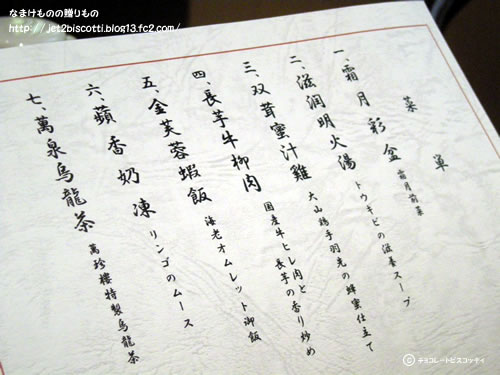 なまけものの贈りもの
http://jet2biscotti.blog13.fc2.com/
菜 單
一、霜月彩盆
霜月前菜
二、滋润明火湯
トウキビの滋養スープ
三、双茸蜜汁雞
大山鶏手羽先の蜂蜜仕立て
四、長芋牛柳肉
国産牛ヒレ肉と長芋の香り炒め
五、金芙蓉蝦飯
海老オムレット御飯
六、蘋香奶凍
リンゴのムース
七、萬泉烏龍茶
萬珍樓特製烏龍茶
© チョコレートビスコッティ